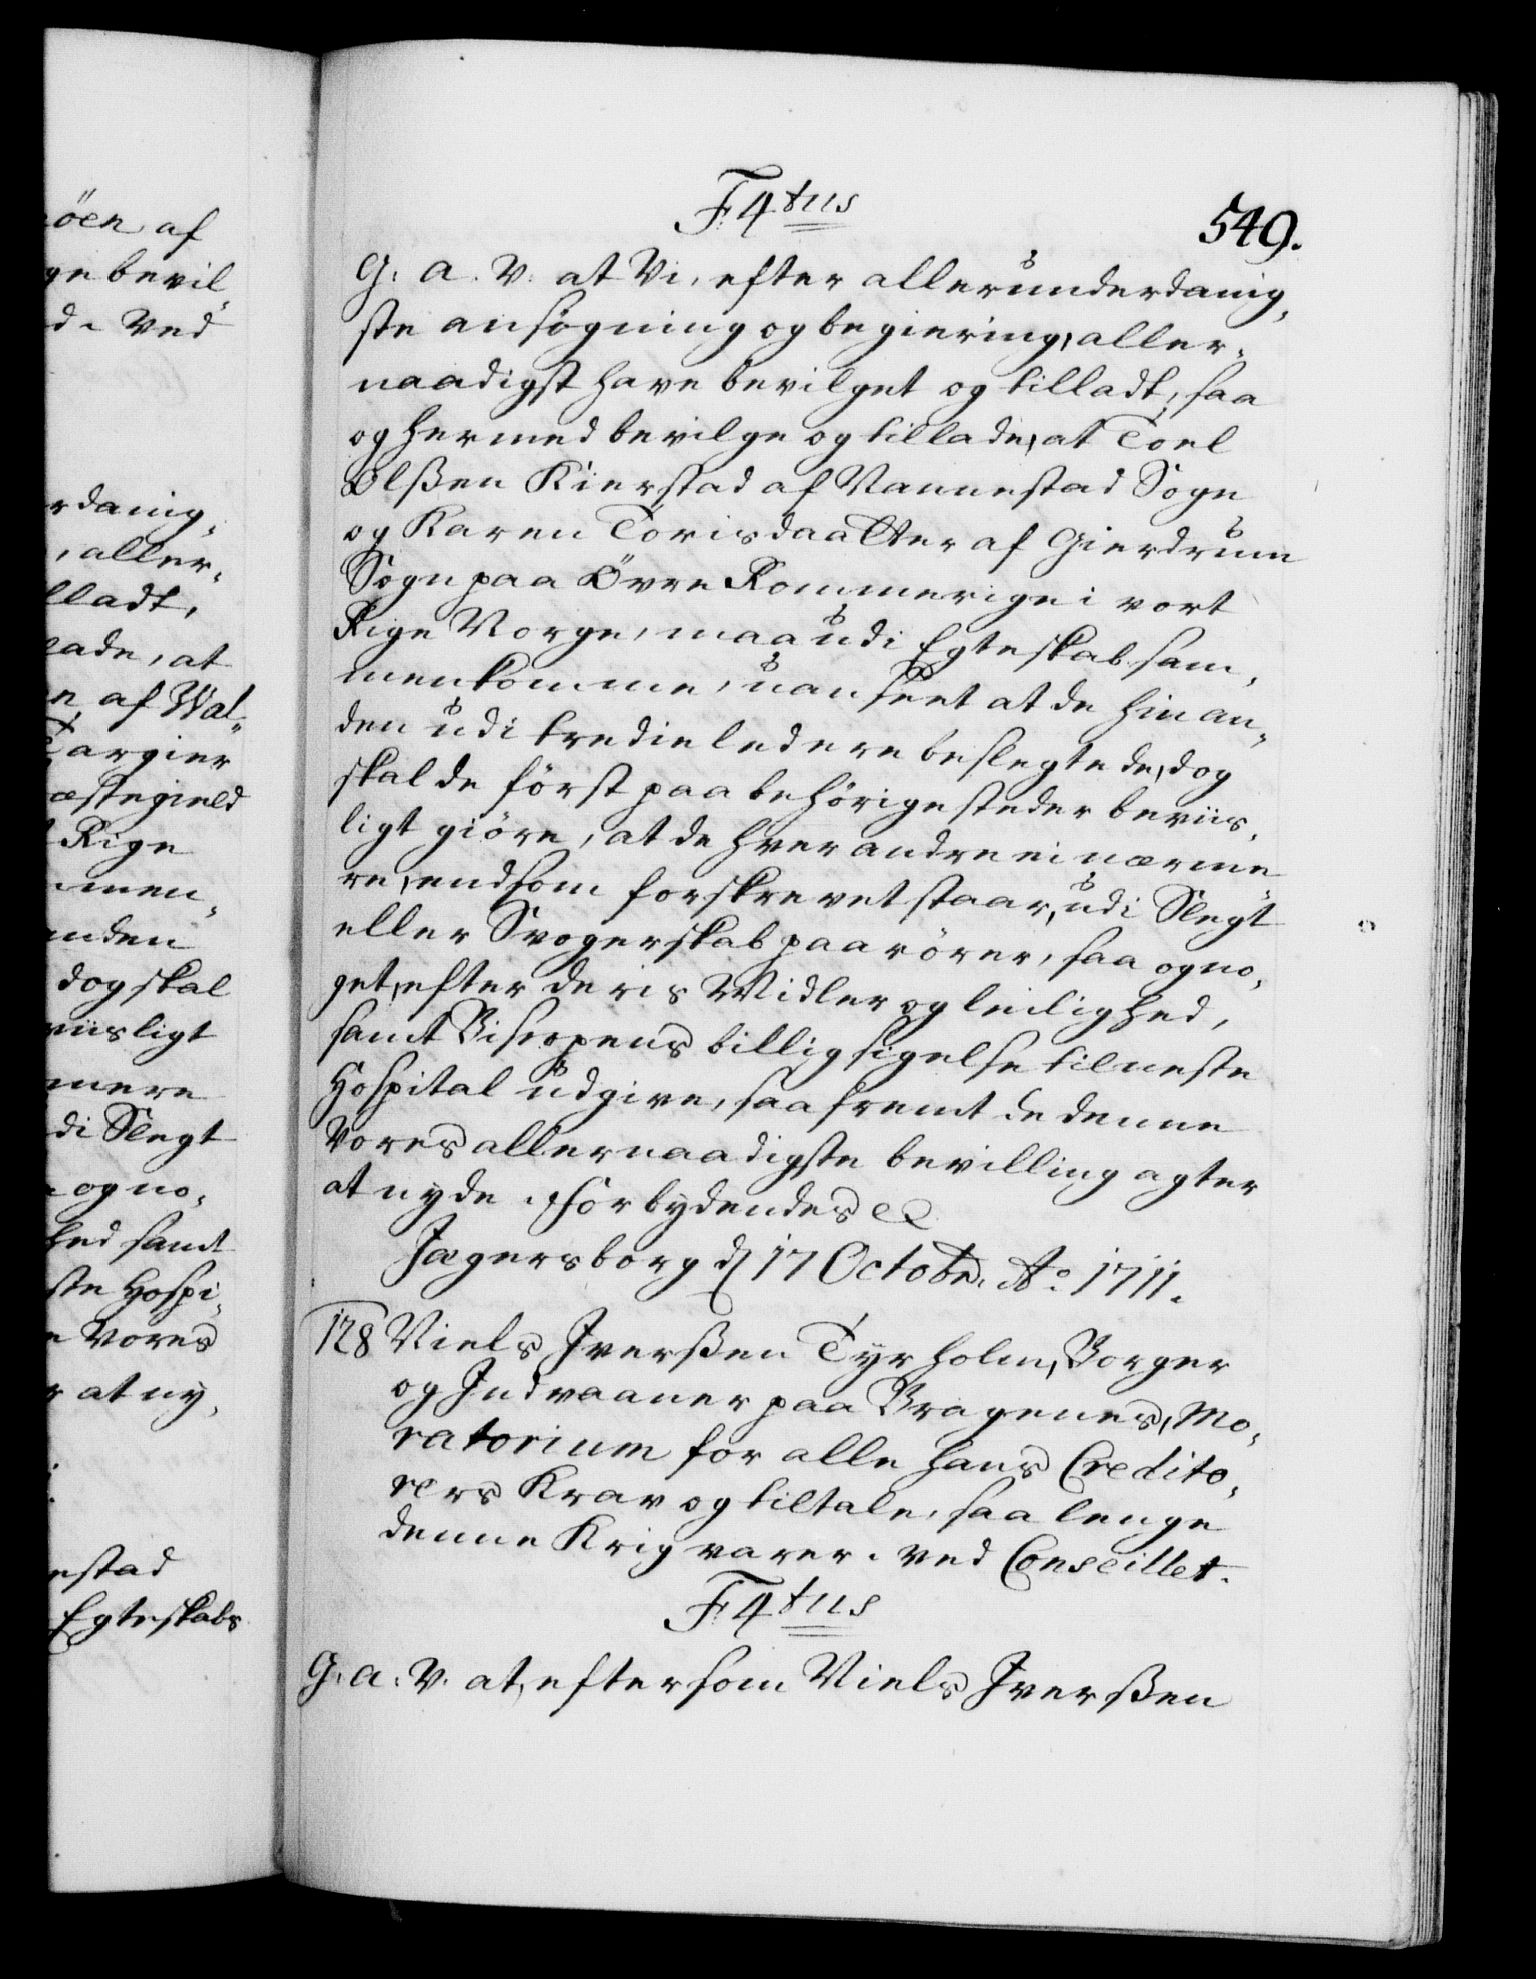 öen af
ge bevil
d. Ved
rdanig,
, aller,
lladt,
lade, at
n af Wal,
Targier
æstegield
t Rige
men,
nden
dog skal
viisligt
mere
di Slegt
ogno,
hed samt
ste Hospi,
e Vores
r at ny,
nestad
Egteskabs
F4tus
549.
G: A. V. at Vi, efter allerunderdanig,
ste ansögning og begiering, aller,
naadigst have bevilget og tilladt, saa
og hermed bevilge og tillade, at Toel
Olßen Kierstad af Nannestad Sogn
og Karen Torisdaatter af Gierdrum
Sogn paa Övre Rommerige i vort
Rige Norge, maa udi Egteskab sam,
menkomme, uanseet at de hinan,
den udi tredie led ere beslegtede, dog
skal de först paa behörige steder beviis,
ligt giöre, at de hverandre ei nærme
re, end som forskrevet staar, udi Slegt
eller Svogerskab paarörer, saa og no,
get, efter deris Midler og leilighed,
samt Biscopens billig sigelse til neste
Hospital udgive, saafremt de denne
Vores allernaadigste bevilling agter
at nyde. Forbydendes &
Jægersborg d 17 Octobr. Ao. 1711.
128 Niels Iverßen Tyrholm, Borger
og Indvaaner paa Bragenes, Mo,
ratorium for alle hans Credito,
rers Krav og tiltale, saa lenge
denne Krig varer. Ved Conseillet.
F4tus
G. A. V. at, eftersom Niels Iverßen